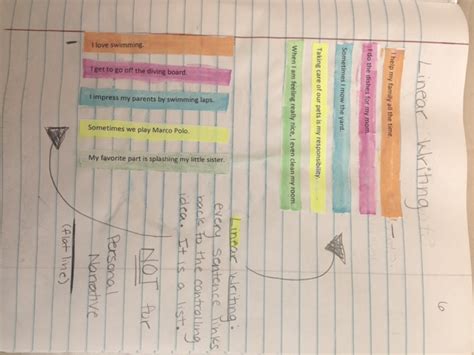 6
Linear Writing
I help my family all the time.
I do the dishes for my mom.
Sometimes I mow the yard.
Taking care of our pets is my responsibility.
When I am feeling really nice, I even clean my room.
Linear Writing:
every sentence links
back to the controlling
idea. It is a list.
NOT for
Personal
Narrative
(flat line)
I love swimming.
I get to go off the diving board.
I impress my parents by swimming laps.
Sometimes we play Marco Polo.
My favorite part is splashing my little sister.